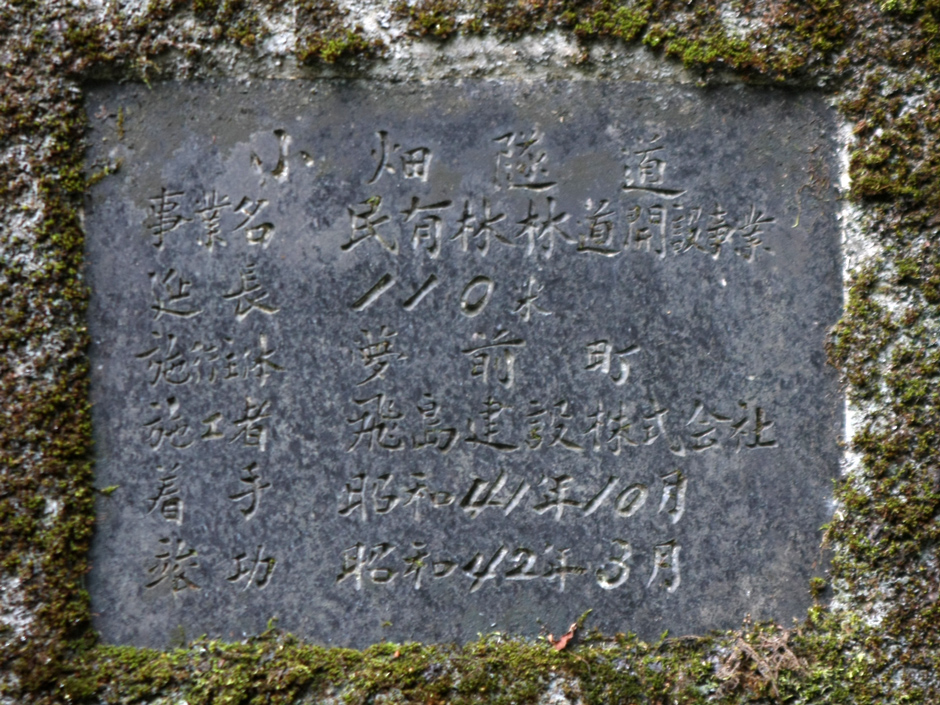 小畑隧道
事業名 民有林林道開設事業
延長 110米
施行主体 夢前町
施工者 飛島建設株式会社
着手 昭和41年10月
竣功 昭和42年3月